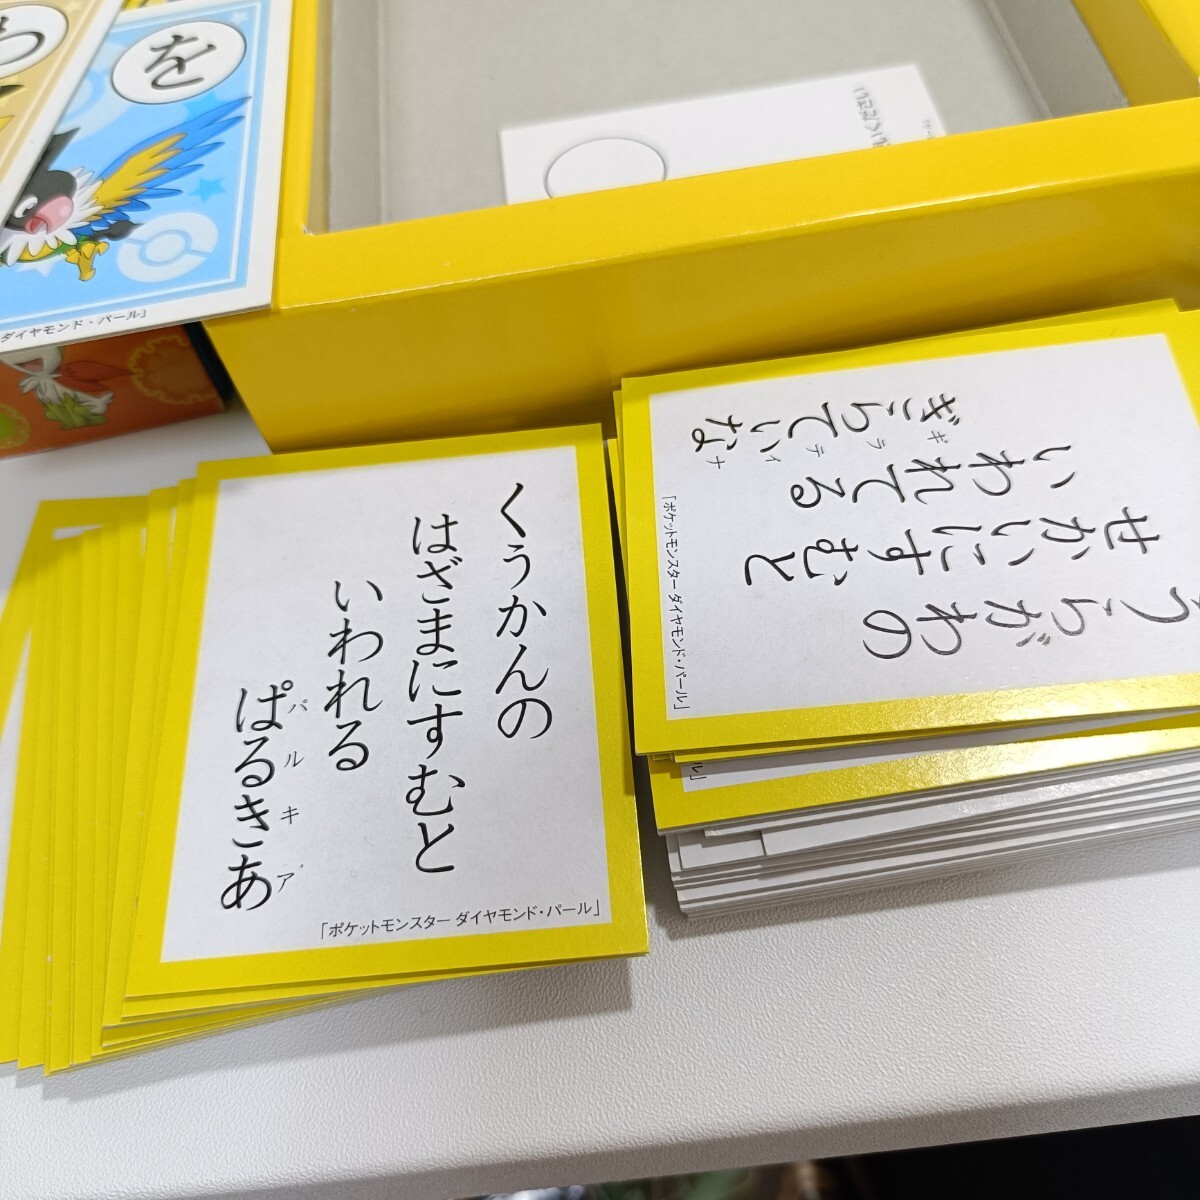 を
ダイヤモンド・パール」
くうかんの
はざまにすむと
いわれる
ぱるきあ
パルキア
「ポケットモンスター ダイヤモンド・パール」
うらがわの
せかいにすむと
いわれてる
ぎらてぃな
ギラティナ
「ポケットモンスター ダイヤモンド・パール」
ル」